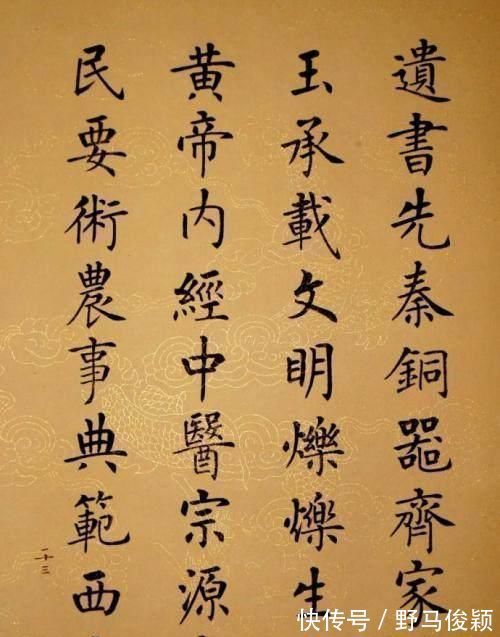 遺書先秦銅器齊家
玉承載文明爍爍生
黄帝内經中醫宗源
民要術農事典範西
二十三
快传号／野马俊颖